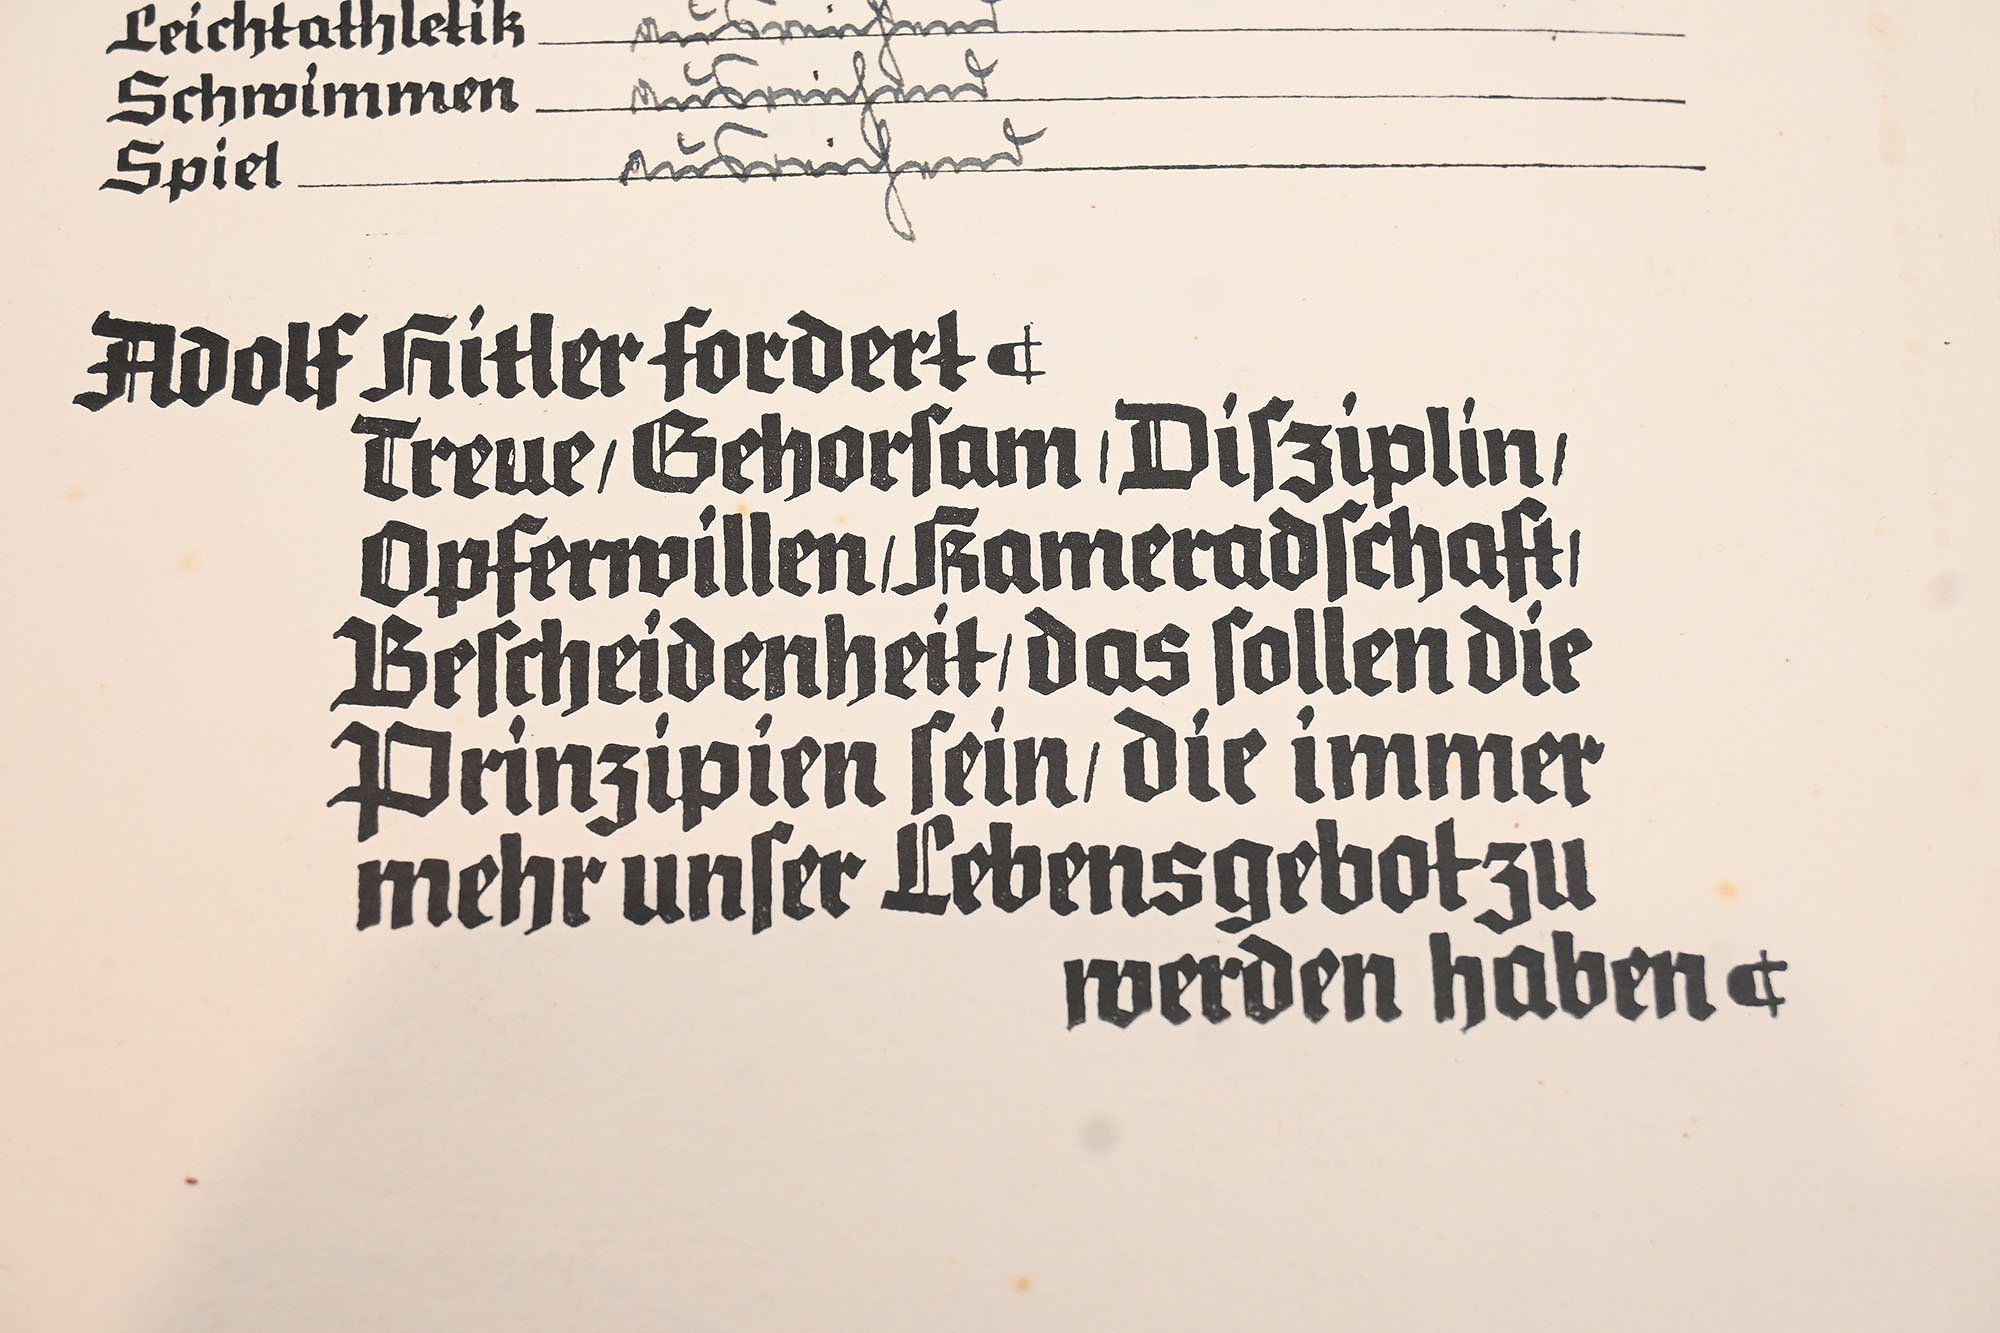 Leichtathletik ausreichend
Schwimmen ausreichend
Spiel ausreichend
Adolf Hitler fordert ₵
Treue / Gehorſam / Diſziplin /
Opferwillen / Kameradſchaft /
Beſcheidenheit / das ſollen die
Prinzipien ſein / die immer
mehr unſer Lebensgebot zu
werden haben ₵